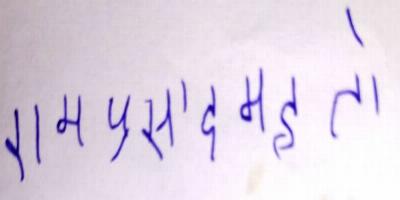 रामप्रसाद महतो